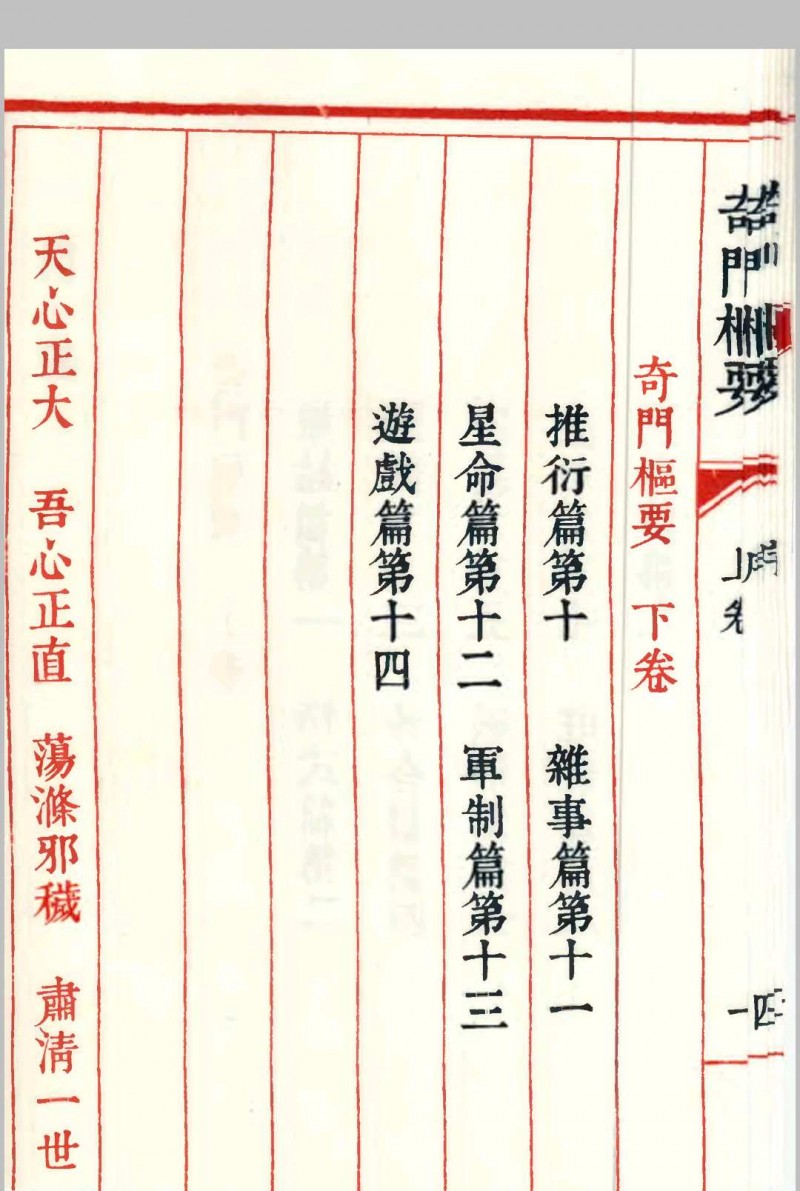 奇門樞要　下卷
推衍篇第十　雜事篇第十一
星命篇第十二　軍制篇第十三
遊戲篇第十四
天心正大　吾心正直　蕩滌邪穢　肅清一世